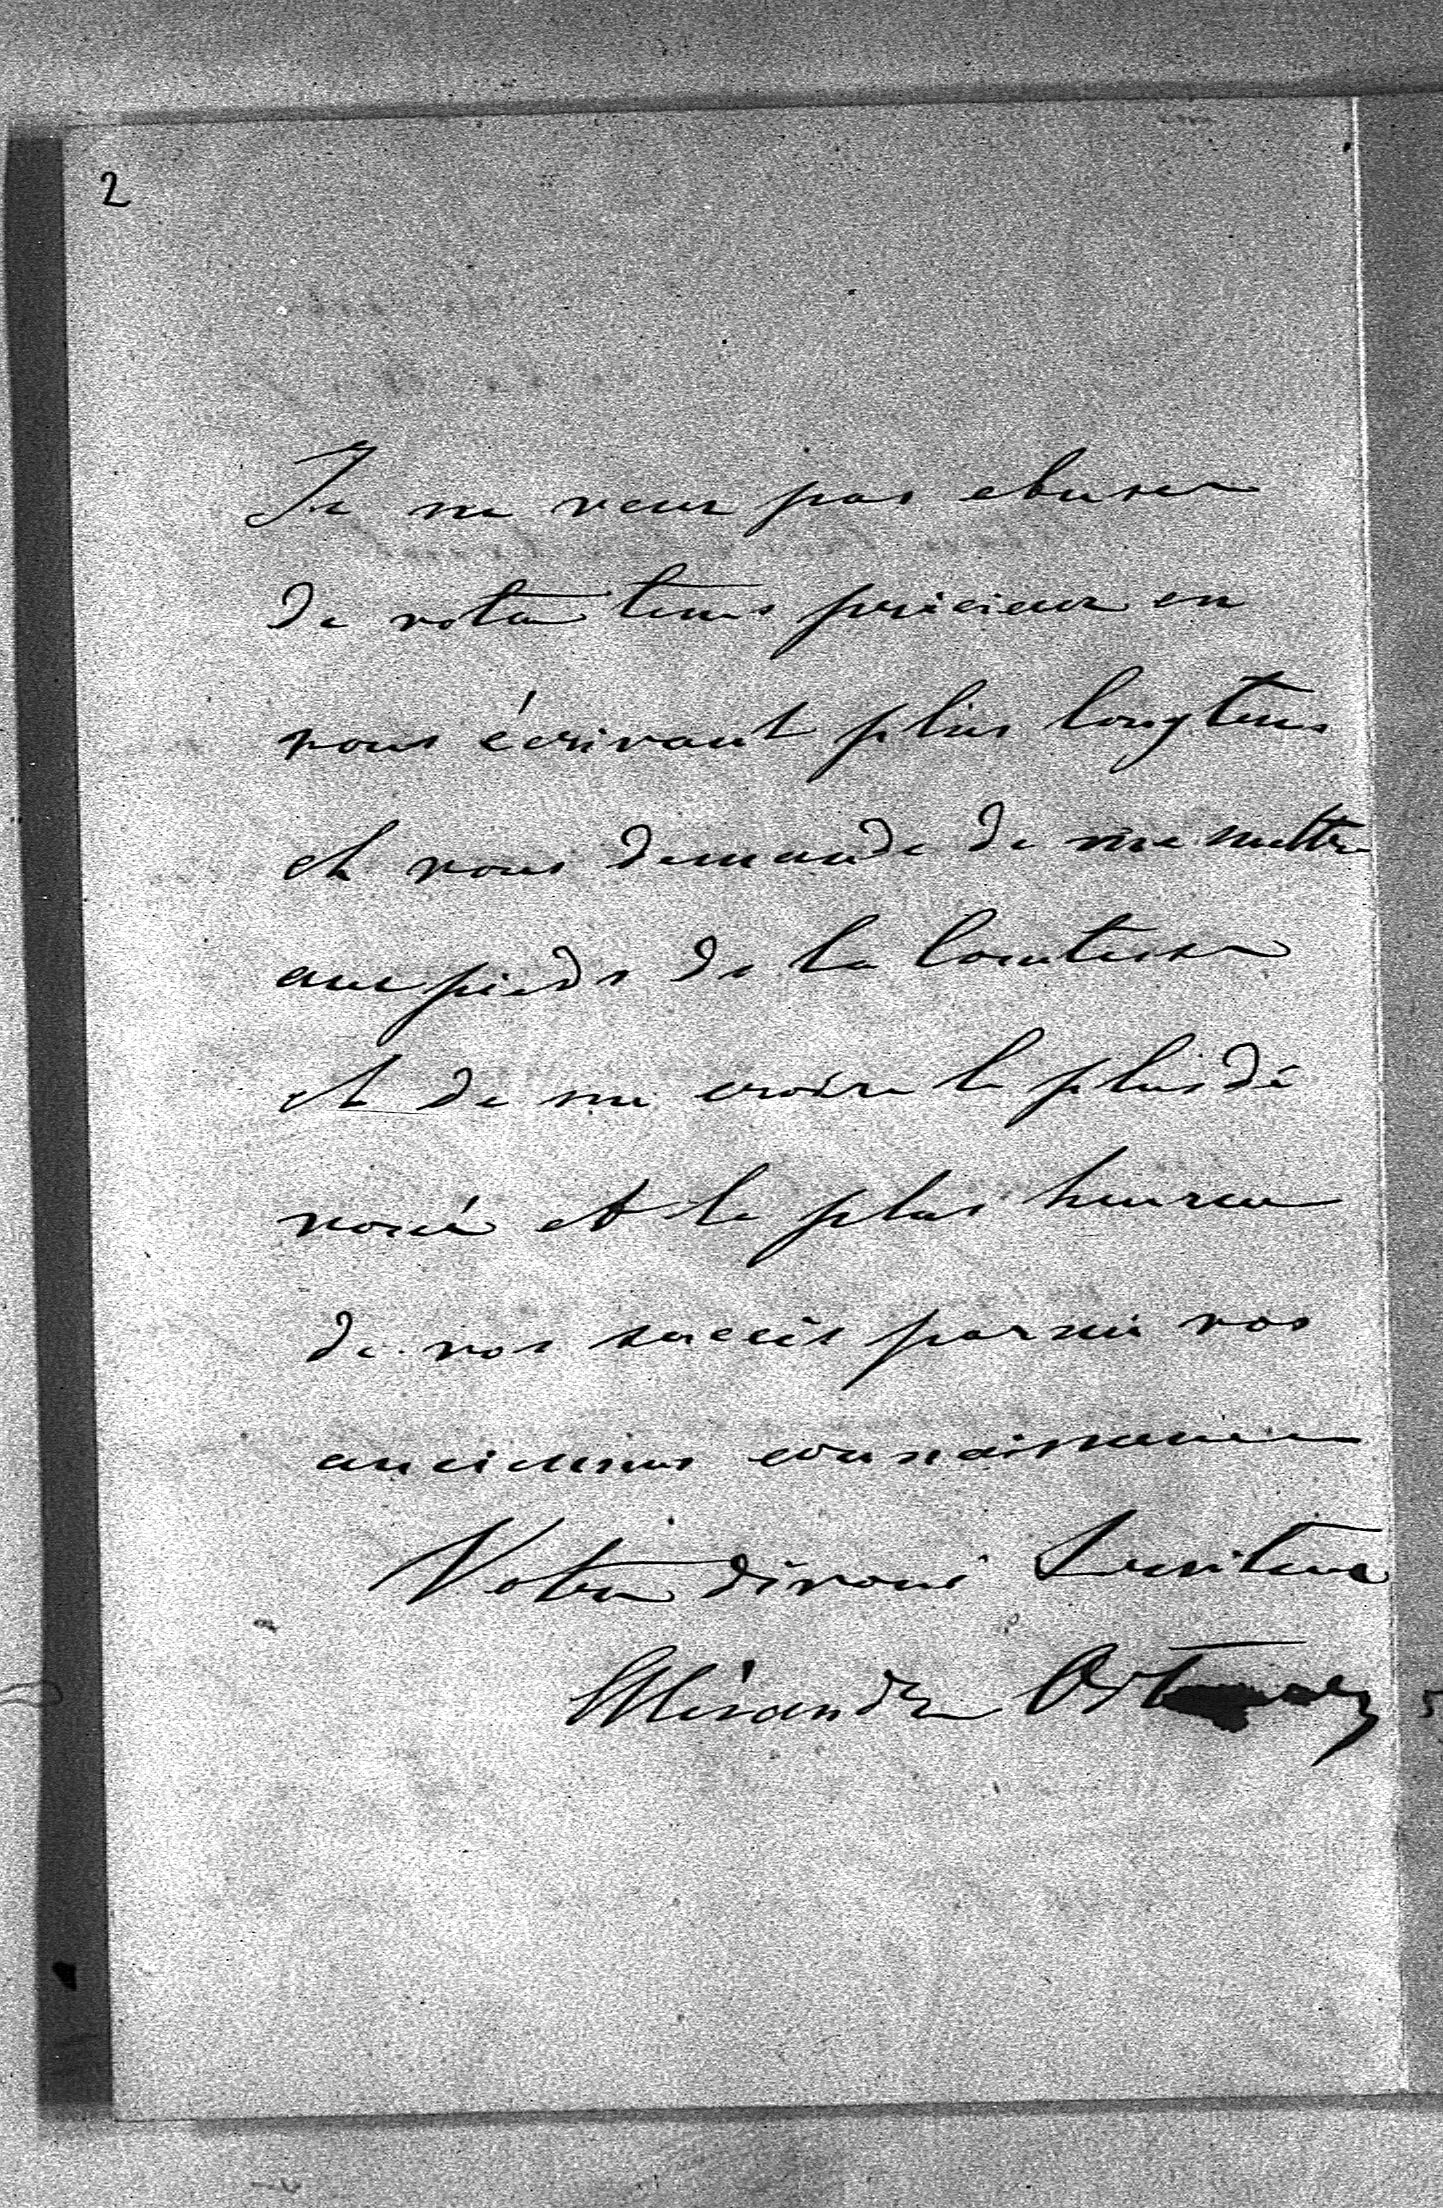 2
Je ne veux pas abuser
de votre tems précieux en
vous écrivant plus longtems
et vous demande de me mettre
aux pieds de la Comtesse
et de me croire le plus dé
voué et le plus heureux
de vos succès parmi vos
anciennes connaissances
Votre dévoué Serviteur
Alexandre